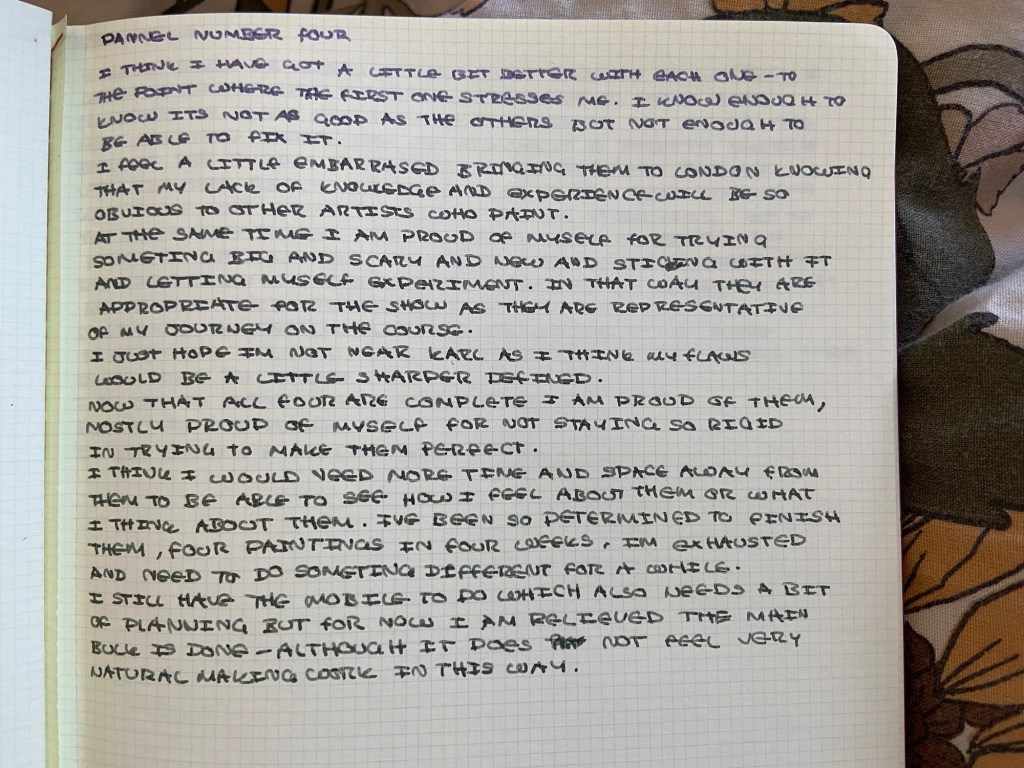 PANNEL NUMBER FOUR
I THINK I HAVE GOT A LITTLE BIT BETTER WITH EACH ONE - TO
THE POINT WHERE THE FIRST ONE STRESSES ME. I KNOW ENOUGH TO
KNOW ITS NOT AS GOOD AS THE OTHERS BUT NOT ENOUGH TO
BE ABLE TO FIX IT.
I FEEL A LITTLE EMBARRASED BRINGING THEM TO LONDON KNOWING
THAT MY LACK OF KNOWLEDGE AND EXPERIENCE WILL BE SO
OBVIOUS TO OTHER ARTISTS WHO PAINT.
AT THE SAME TIME I AM PROUD OF MYSELF FOR TRYING
SOMETING BIG AND SCARY AND NEW AND STICKING WITH IT
AND LETTING MYSELF EXPERIMENT. IN THAT WAY THEY ARE
APPROPRIATE FOR THE SHOW AS THEY ARE REPRESENTATIVE
OF MY JOURNEY ON THE COURSE.
I JUST HOPE IM NOT NEAR KARL AS I THINK MY FLAWS
WOULD BE A LITTLE SHARPER DEFINED.
NOW THAT ALL FOUR ARE COMPLETE I AM PROUD OF THEM,
MOSTLY PROUD OF MYSELF FOR NOT STAYING SO RIGID
IN TRYING TO MAKE THEM PERFECT.
I THINK I WOULD NEED MORE TIME AND SPACE AWAY FROM
THEM TO BE ABLE TO SEE HOW I FEEL ABOUT THEM OR WHAT
I THINK ABOUT THEM. IVE BEEN SO DETERMINED TO FINISH
THEM, FOUR PAINTINGS IN FOUR WEEKS, IM EXHAUSTED
AND NEED TO DO SOMETING DIFFERENT FOR A WHILE.
I STILL HAVE THE MOBILE TO DO WHICH ALSO NEEDS A BIT
OF PLANNING BUT FOR NOW I AM RELIEVED THE MAIN
BULK IS DONE - ALTHOUGH IT DOES NOT FEEL VERY
NATURAL MAKING WORK IN THIS WAY.